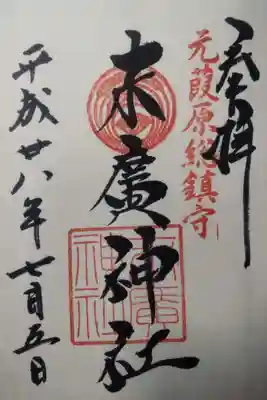 奉拝
元葭原総鎮守
末廣神社
末廣神社
平成廿八年七月五日